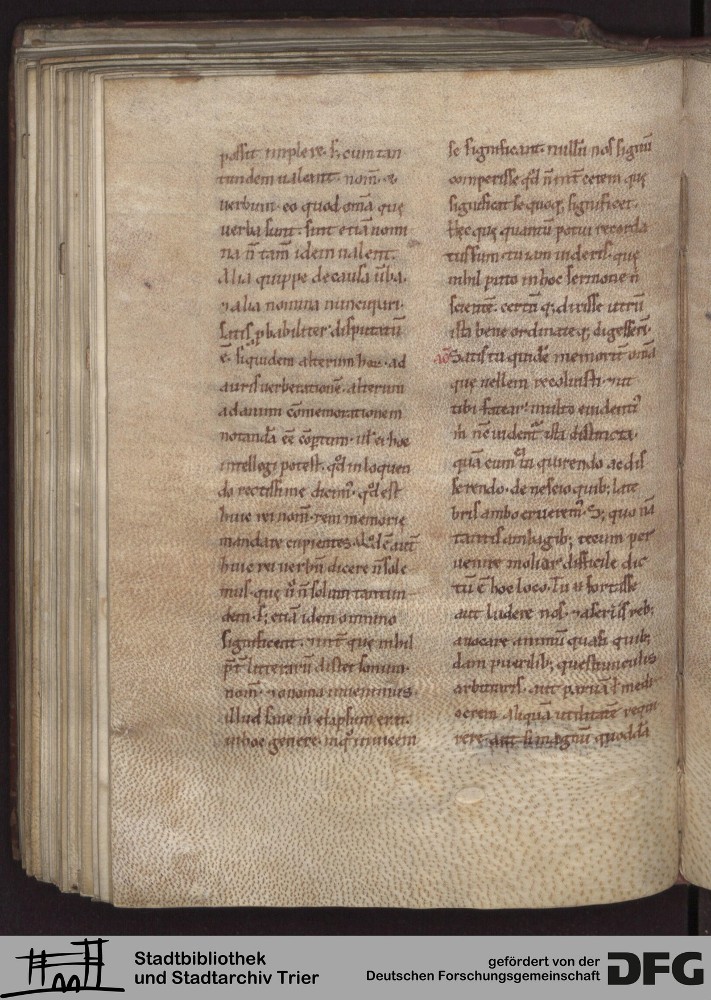 possit implere. s; cum tan
tundem ualeant. nom̄. &
verbum. eo quod om̄a quę
verba sunt. sint etiā nomi
na n̄ tam̄ idem ualent.
Alia quippe de causa ūba.
⁊ alia nomina nuncupari.
satis p̱babiliter disputatū
ē. siquidem alterum hoꝝ. ad
auris verberationē. alterum
ad animi cōmemorationem
notandā eē cōptum. ul' ei hoc
intellegi potest. qd̄ in loquen
do rectissime dicim᷒. qd̄ est
huic rei nom̄. rem memorie
mandare cupientes.
huic rei verbū dicere n̄ sole
mus. quę ū n̄ solum tantun
dem. s; etiā idem omnino
significent. ⁊ int̄ quę nihil
p̄t litterarū distet sonum.
nom̄. ⁊ onoma inuenimus.
illud sane m̄ elapsum erat.
in hoc genere. inuicem
se significant. nullū nos signū
comperisse qd̄ n̄ int̄ cetera quę
significat se quoq; significet.
Hęc quę quantū potui recorda
tus sum. tu iam uideris. quę
nihil puto in hoc sermone n̄
scientē. certū q; dixisse utrū
ista bene ordinateq; digesseri.
AD Satis tu quidē memorit̄ om̄a
quę uellem recoluisti. ⁊ ut
tibi fatear. multo euidenti᷒
m̄ nc̄ uident̄ ista distincta.
quā cum ea inquirendo ac dis
serendo. de nescio quib; late
bris ambo erueremꝰ. S; quo nā
tantis ambagib; tecum per
uenire moliar difficile dic
tū ē hoc loco. Tu ū fortasse
aut ludere nos. ⁊ a seriis reb;
auocare animū quasi quib;
dam puerilib; questiunculis
arbitraris. aut paruā l' medi
ocrem aliquā utilitatē requi
rere. aut si magnū quoddā
Stadtbibliothek
und Stadtarchiv Trier
gefördert von der
Deutschen Forschungsgemeinschaft
DFG